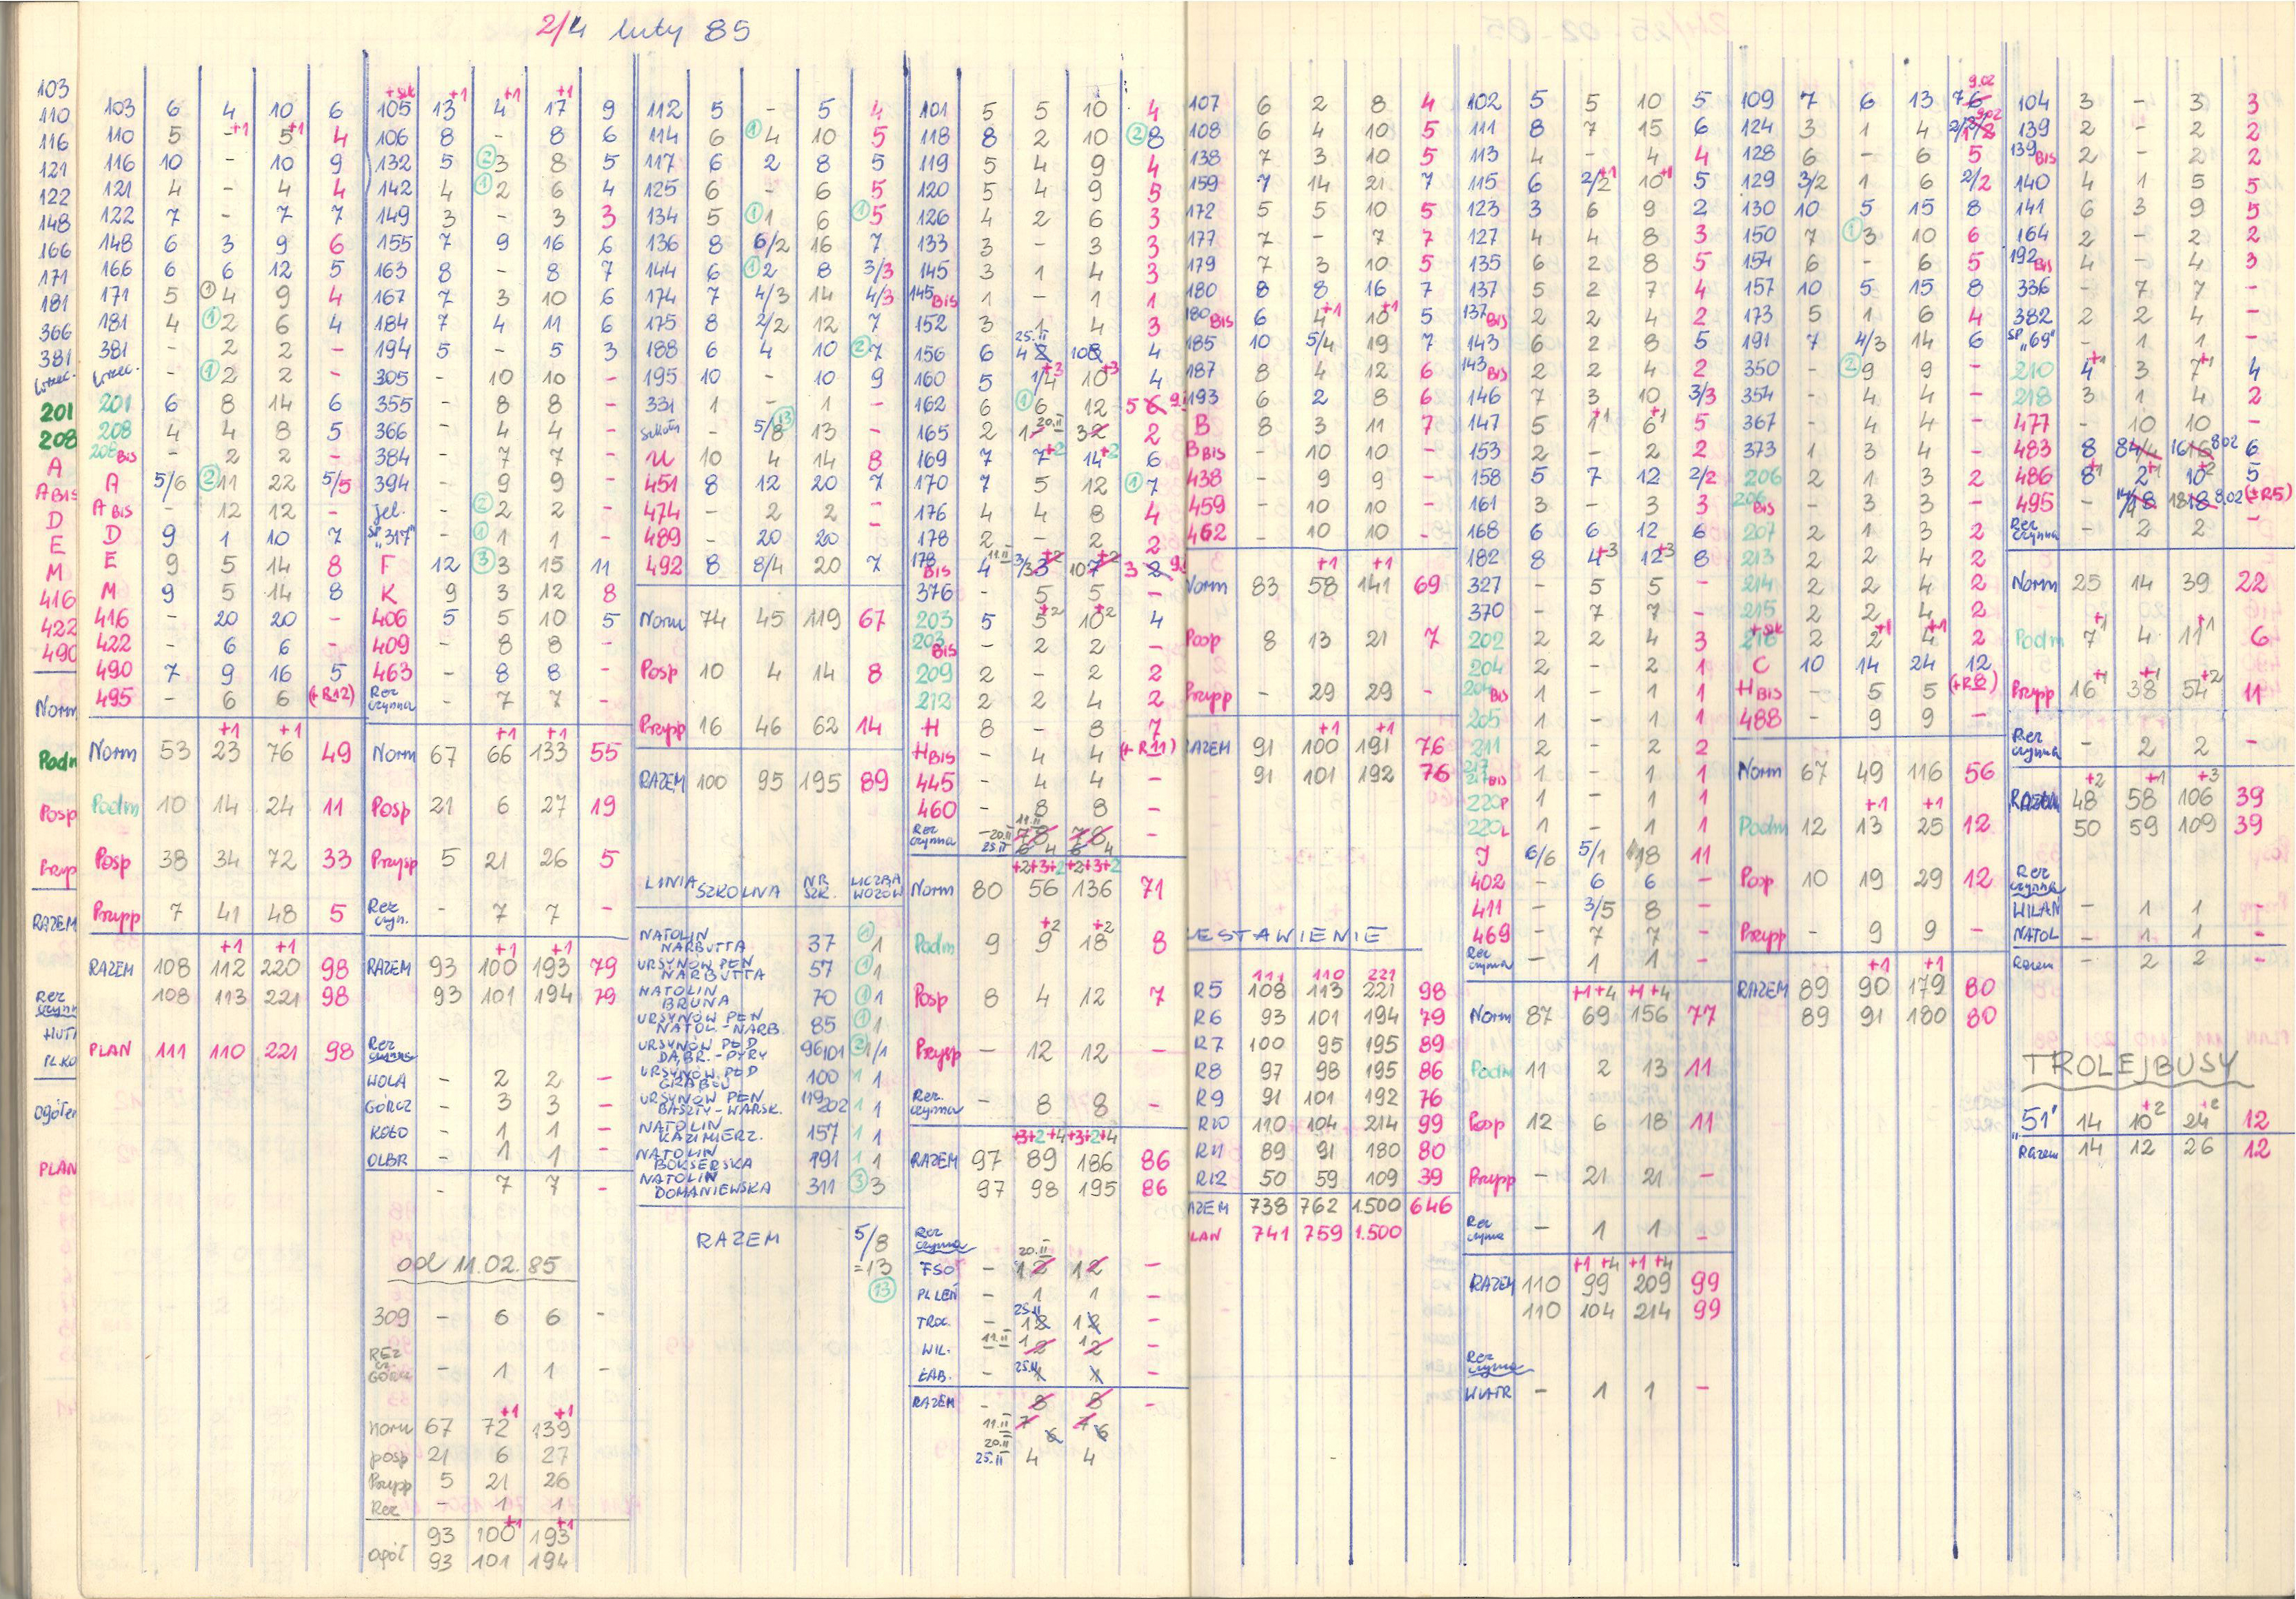 2/4 luty 85
103
110
116
121
122
148
166
171
181
366
381
201
208
A
A BIS
D
E
M
416
422
490
Norm
Podm
Posp
RAZEM
PLAN
103 6 4 10 6
110 5 - +1 5 +1 4
116 10 - 10 9
121 4 - 4 4
122 7 - 7 7
148 6 3 9 6
166 6 6 12 5
171 5 (1) 4 9 4
181 4 (1) 2 6 4
381 - 2 2 -
- (1) 2 2 -
201 6 8 14 6
208 4 4 8 5
208 BIS - 2 2 -
A 5/6 (2) 11 22 5/5
A BIS - 12 12 -
D 9 1 10 7
E 9 5 14 8
M 9 5 14 8
416 - 20 20 -
422 - 6 6 -
490 7 9 16 5
495 - 6 6 (+R12)
+1 +1
Norm 53 23 76 49
Podm 10 14 24 11
Posp 38 34 72 33
Przypp 7 41 48 5
+1 +1
RAZEM 108 112 220 98
108 113 221 98
PLAN 111 110 221 98
+1 +1 +1
105 13 4 17 9
106 8 - 8 6
132 5 (2) 3 8 5
142 4 (1) 2 6 4
149 3 - 3 3
155 7 9 16 6
163 8 - 8 7
167 7 3 10 6
184 7 4 11 6
194 5 - 5 3
305 - 10 10 -
355 - 8 8 -
366 - 4 4 -
384 - 7 7 -
394 - 9 9 -
Jel. - (2) 2 2 -
SP. "317" - (1) 1 1 -
F 12 (3) 3 15 11
K 9 3 12 8
406 5 5 10 5
409 - 8 8 -
463 - 8 8 -
Rez czynna - 7 7 -
+1 +1
Norm 67 66 133 55
Posp 21 6 27 19
Przysp 5 21 26 5
Rez czyn. - 7 7 -
+1 +1
RAZEM 93 100 193 79
93 101 194 79
Rez czynna
WOLA - 2 2 -
GÓRCZ - 3 3 -
KOŁO - 1 1 -
OLBR - 1 1 -
- 7 7 -
od 11.02.85
309 - 6 6 -
REZ cz. GÓRCZ - 1 1 -
+1 +1
norm 67 72 139
posp 21 6 27
Przypp 5 21 26
Rez - 1 1
93 100 +1 193 +1
ogół 93 101 194
112 5 - 5 4
114 6 (1) 4 10 5
117 6 2 8 5
125 6 - 6 5
134 5 (1) 1 6 (1) 5
136 8 6/2 16 7
144 6 (1) 2 8 3/3
174 7 4/3 14 4/3
175 8 2/2 12 7
188 6 4 10 (2) 7
195 10 - 10 9
331 1 - 1 -
szkoln - 5/8 (13) 13 -
U 10 4 14 8
451 8 12 20 7
474 - 2 2 -
489 - 20 20 -
492 8 8/4 20 7
Norm 74 45 119 67
Posp 10 4 14 8
Przypp 16 46 62 14
RAZEM 100 95 195 89
LINIA SZKOLNA NR SZK. LICZBA WOZÓW
NATOLIN NARBUTTA 37 (1) 1
URSYNÓW PŁN NARBUTTA 57 (1) 1
NATOLIN BRUNA 70 (1) 1
URSYNÓW PŁN NATOL.-NARB. 85 (1) 1
URSYNÓW PŁD DĄBR.-PYRY 96/101 (2) 1/1
URSYNÓW PŁD GRABÓW 100 1 1
URSYNÓW PŁN BASZTY-WARSK. 119/202 1 1
NATOLIN KAZIMIERZ. 157 1 1
NATOLIN BOKSERSKA 191 1 1
NATOLIN DOMANIEWSKA 311 (3) 3
RAZEM 5/8
=13
(13)
101 5 5 10 4
118 8 2 10 (2) 8
119 5 4 9 4
120 5 4 9 5
126 4 2 6 3
133 3 - 3 3
145 3 1 4 3
145 BIS 1 - 1 1
152 3 1 4 3
25.II
156 6 4 10 4
160 5 1/4 +3 10 +3 4
162 6 (1) 6 12 5 6
165 2 1 20.II 3 2 2
169 7 7 +2 14 +2 6
170 7 5 12 (1) 7
176 4 4 8 4
178 2 - 2 2
178 BIS 4 11.II 3/3 +2 10 7 +2 3 2
376 - 5 5 -
203 5 5 +2 10 +2 4
203 BIS - 2 2 -
209 2 - 2 2
212 2 2 4 2
H 8 - 8 7
H BIS - 4 4 (+R11)
445 - 4 4 -
460 - 8 8 -
Rez czynna - 20.II 25.II 11.II 7 8 6 4 7 8 6 4 -
+2+3+2 +2+3+2
Norm 80 56 136 71
Podm 9 9 +2 18 +2 8
Posp 8 4 12 7
Przysp - 12 12 -
Rez. czynna - 8 8 -
+3+2+4 +3+2+4
RAZEM 97 89 186 86
97 98 195 86
Rez czynna
20.II
FSO - 1 2 1 2 -
PL LEN - 1 1 -
25.II
TROC. - 1 2 1 2 -
WIL. 11.II 1 2 1 2 -
ŁAB. - 25.II 1 1 -
RAZEM - 8 8 -
11.II 7 7
20.II 6 6
25.II 4 4
107 6 2 8 4
108 6 4 10 5
138 7 3 10 5
159 7 14 21 7
172 5 5 10 5
177 7 - 7 7
179 7 3 10 5
180 8 8 16 7
180 BIS 6 4 +1 10 +1 5
185 10 5/4 19 7
187 8 4 12 6
193 6 2 8 6
B 8 3 11 7
B BIS - 10 10 -
438 - 9 9 -
459 - 10 10 -
462 - 10 10 -
+1 +1
Norm 83 58 141 69
Posp 8 13 21 7
Przypp - 29 29 -
+1 +1
RAZEM 91 100 191 76
91 101 192 76
ZESTAWIENIE
111 110 221
R5 108 113 221 98
R6 93 101 194 79
R7 100 95 195 89
R8 97 98 195 86
R9 91 101 192 76
R10 110 104 214 99
R11 89 91 180 80
R12 50 59 109 39
AZEM 738 762 1.500 646
LAN 741 759 1.500
102 5 5 10 5
111 8 7 15 6
113 4 - 4 4
115 6 2/2 +1 10 +1 5
123 3 6 9 2
127 4 4 8 3
135 6 2 8 5
137 5 2 7 4
137 BIS 2 2 4 2
143 6 2 8 5
143 BIS 2 2 4 2
146 7 3 10 3/3
147 5 1 +1 6 +1 5
153 2 - 2 2
158 5 7 12 2/2
161 3 - 3 3
168 6 6 12 6
182 8 4 +3 12 +3 8
327 - 5 5 -
370 - 7 7 -
202 2 2 4 3
204 2 - 2 1
204 BIS 1 - 1 1
205 1 - 1 1
211 2 - 2 2
217 BIS 1 - 1 1
220P 1 - 1 1
220L 1 - 1 1
J 6/6 5/1 18 11
402 - 6 6 -
411 - 3/5 8 -
469 - 7 7 -
Rez czynna - 1 1 -
+1+4 +1+4
Norm 87 69 156 77
Podm 11 2 13 11
Posp 12 6 18 11
Przypp - 21 21 -
Rez czynna - 1 1 -
+1+4 +1+4
RAZEM 110 99 209 99
110 104 214 99
Rez czynna
WIATR - 1 1 -
9.02
109 7 6 13 7 6
124 3 1 4
128 6 - 6 5
129 3/2 1 6 2/2
130 10 5 15 8
150 7 (1) 3 10 6
154 6 - 6 5
157 10 5 15 8
173 5 1 6 4
191 7 4/3 14 6
350 - (2) 9 9 -
354 - 4 4 -
367 - 4 4 -
373 1 3 4 -
206 2 1 3 2
206 BIS - 3 3 -
207 2 1 3 2
213 2 2 4 2
214 2 2 4 2
215 2 2 4 2
216 2 2 +1 4 +1 2
C 10 14 24 12
H BIS - 5 5 (+R8)
488 - 9 9 -
Norm 67 49 116 56
+1 +1
Podm 12 13 25 12
Posp 10 19 29 12
Przypp - 9 9 -
+1 +1
RAZEM 89 90 179 80
89 91 180 80
104 3 - 3 3
139 2 - 2 2
139 BIS 2 - 2 2
140 4 1 5 5
141 6 3 9 5
164 2 - 2 2
192 BIS 4 - 4 3
336 - 7 7 -
382 2 2 4 -
SP. "69" - 1 1 -
210 4 +1 3 7 +1 4
218 3 1 4 2
477 - 10 10 -
483 8 8 4/4 16 16 8.02 6
486 8 +1 2 +1 10 +2 5
495 - 18 18 8.02 (+R5)
Rez czynna - 2 2 -
Norm 25 14 39 22
Podm 7 +1 4 11 +1 6
Przypp 16 +1 38 +1 54 +2 11
Rez czynna - 2 2 -
+2 +1 +3
RAZEM 48 58 106 39
50 59 109 39
Rez czynna
WILAN - 1 1 -
NATOL - 1 1 -
Razem - 2 2 -
TROLEJBUSY
"51" 14 10 +2 24 +2 12
Razem 14 12 26 12